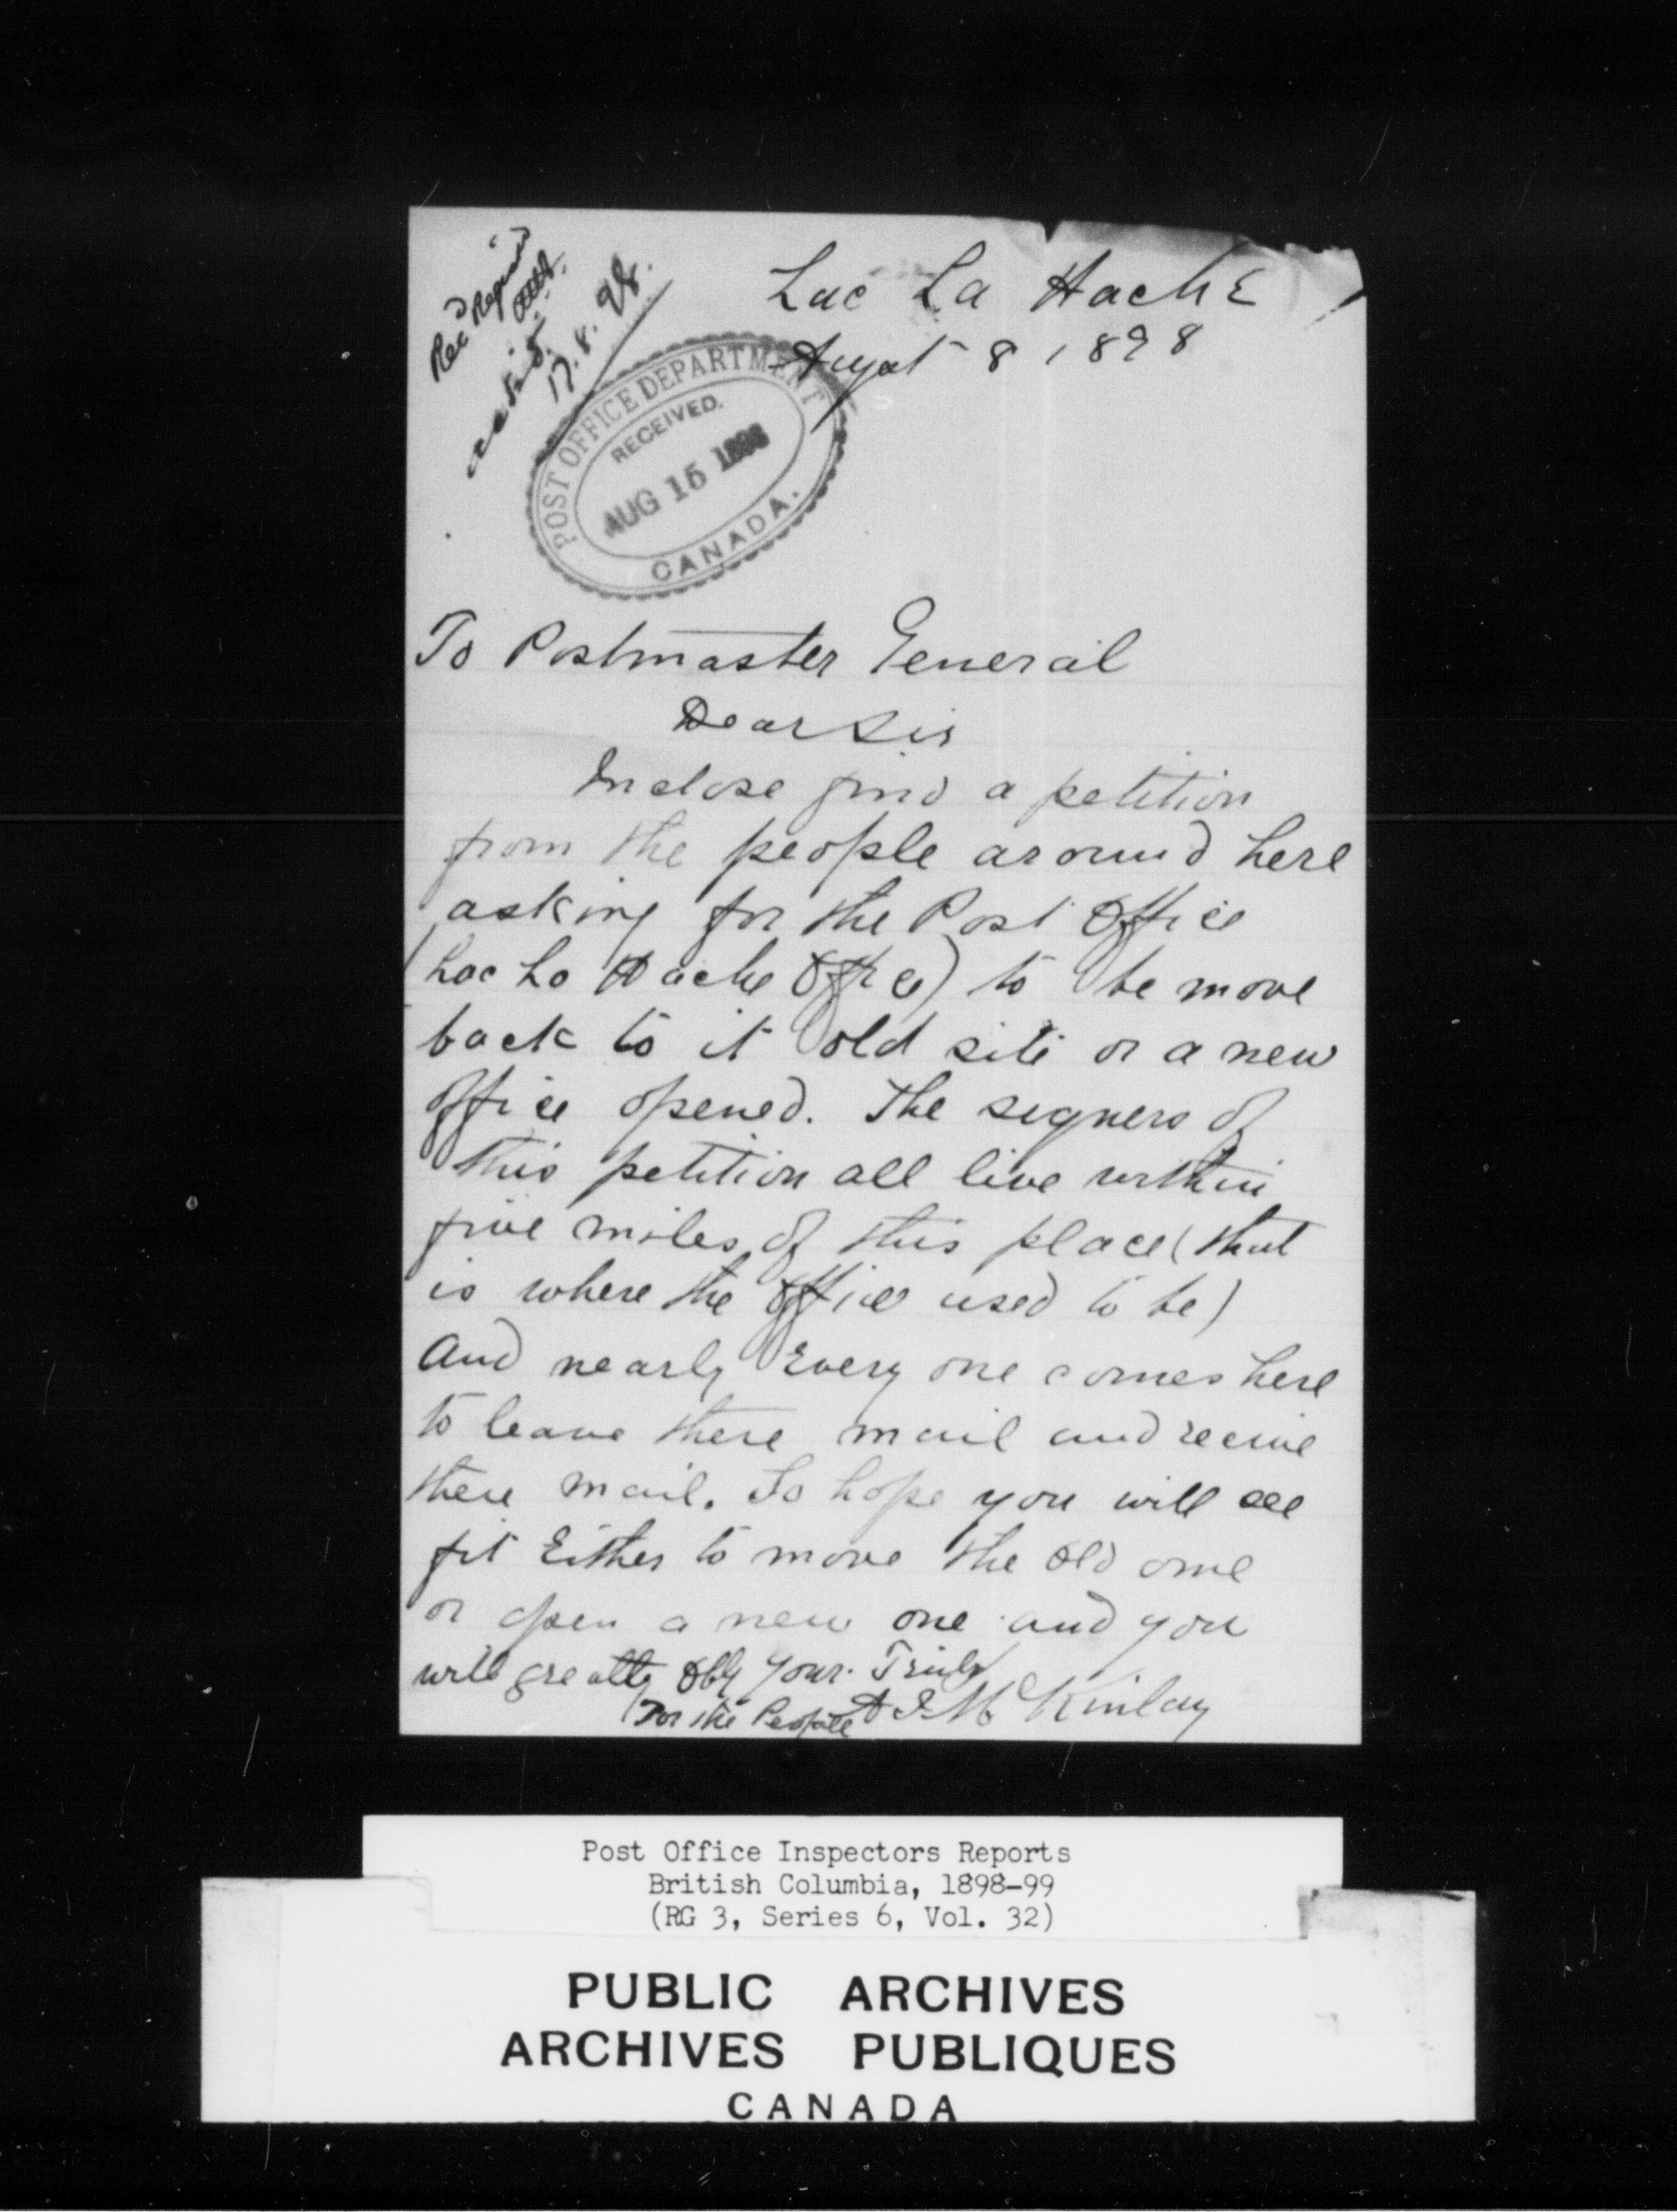 Lac La Hache
August 8 1898
Rec'd
17.8.98.
POST OFFICE DEPARTMENT
RECEIVED.
AUG 15 1898
CANADA.
To Postmaster General
Dear Sir
Inclose find a petition
from the people around here
asking for the Post Office
(Lac La Hache Office) to be move
back to it old site or a new
office opened. The signers of
this petition all live within
five miles of this place (that
is where the office used to be)
And nearly Every one comes here
to leave there mail and receive
there mail. So hope you will see
fit Either to move the old one
or open a new one and you
will greatly Obly Your Truly
For the People A I McKinlay
Post Office Inspectors Reports
British Columbia, 1898-99
(RG 3, Series 6, Vol. 32)
PUBLIC ARCHIVES
ARCHIVES PUBLIQUES
CANADA